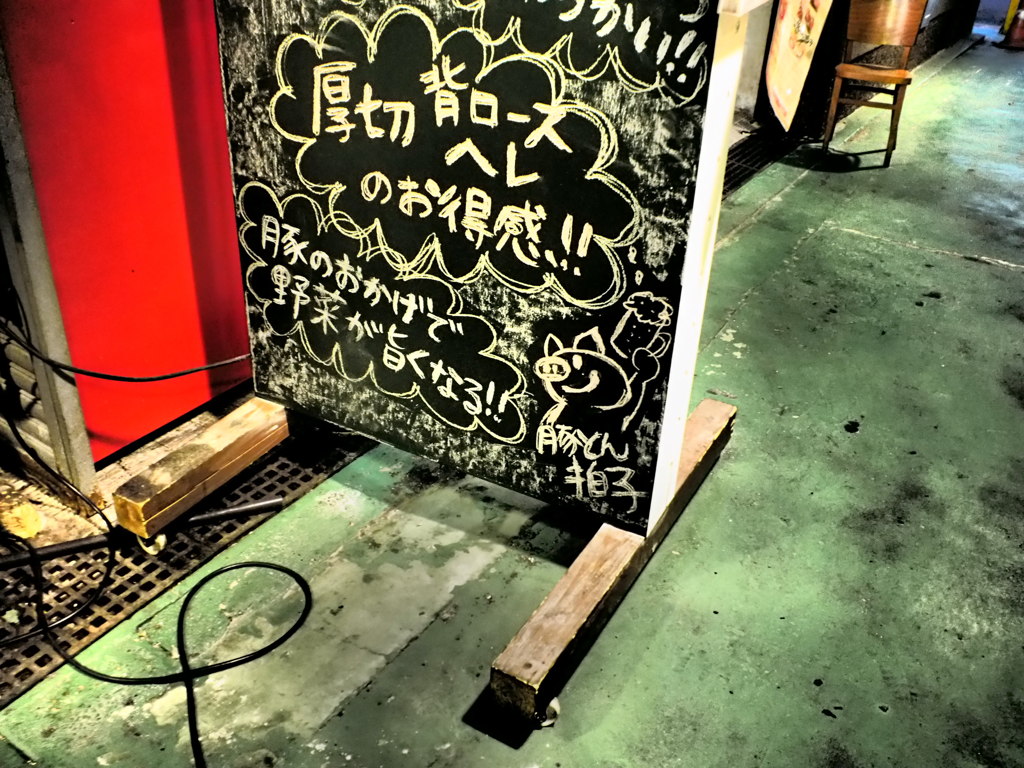 かい!!
厚切 背ロース
ヘレ
のお得感!!
豚のおかげで
野菜が旨くなる!!
豚とん
拍子